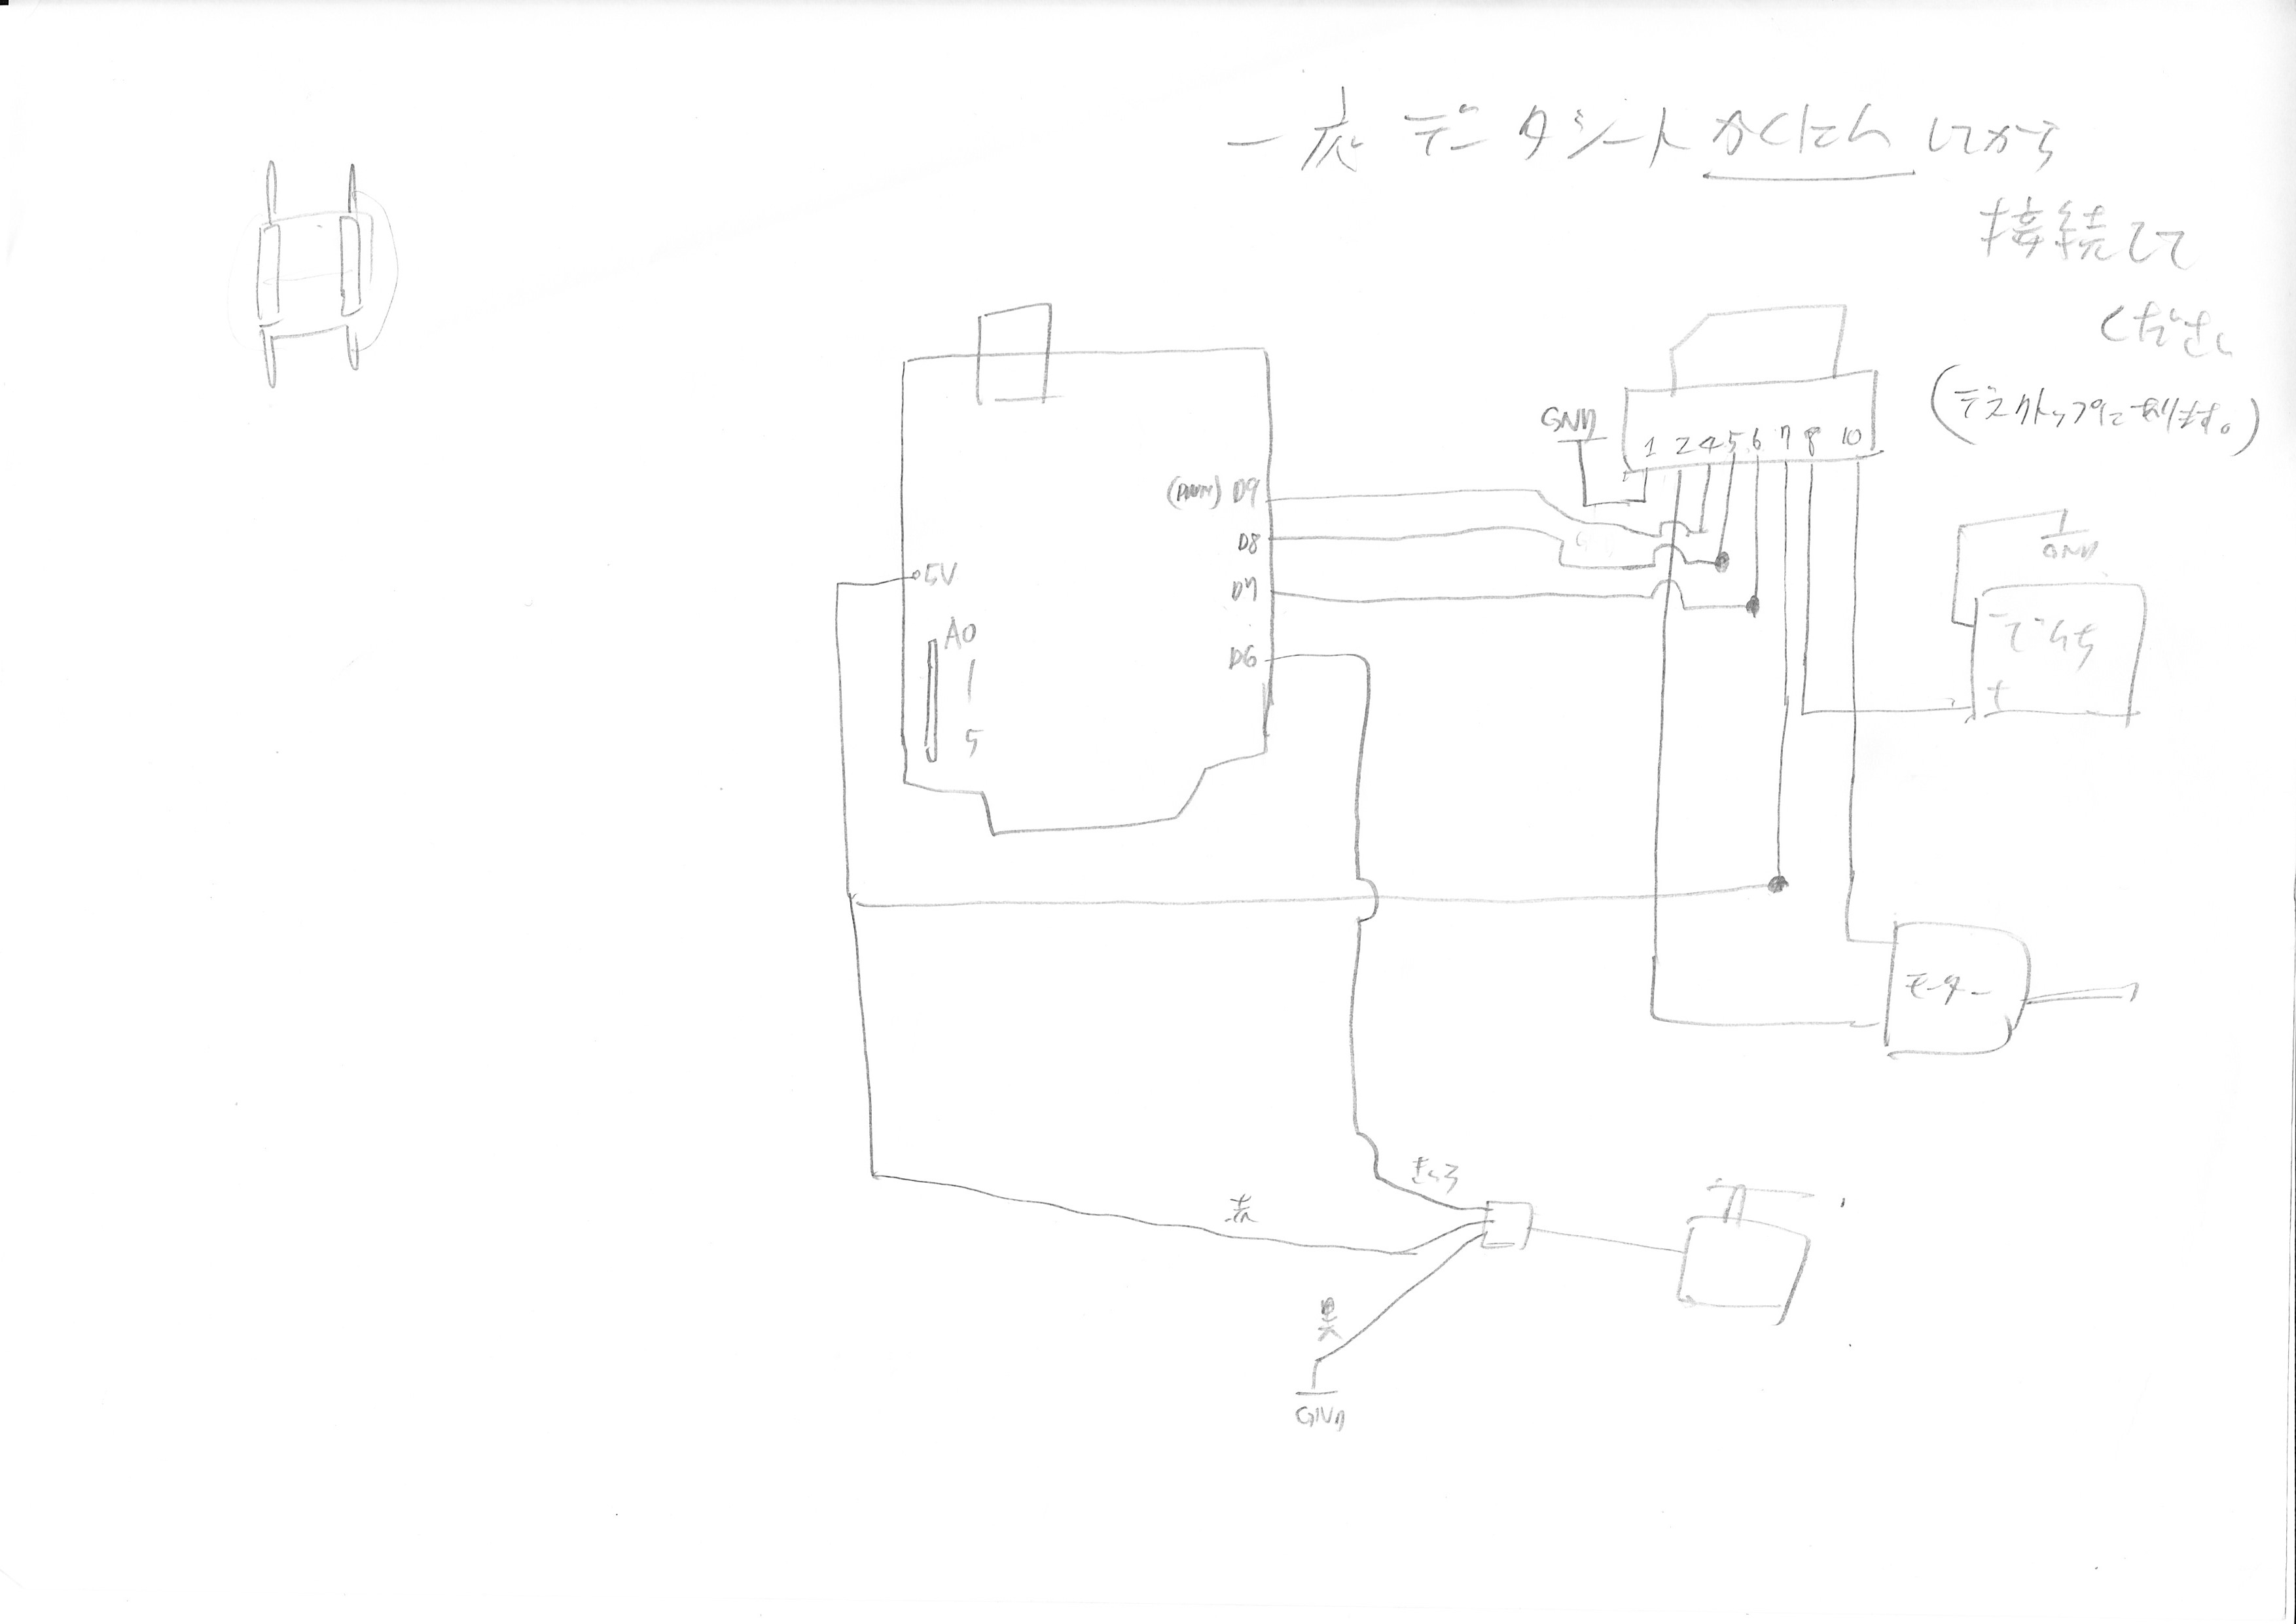 一度データシートかくにんしてから
接続して
ください
(デスクトップにあります。)
GND
1 2 4 5 6 7 8 10
(PWM) D9
D8
D7
D6
5V
A0
5
GND
でんち
+
モーター
きいろ
赤
黒
GND